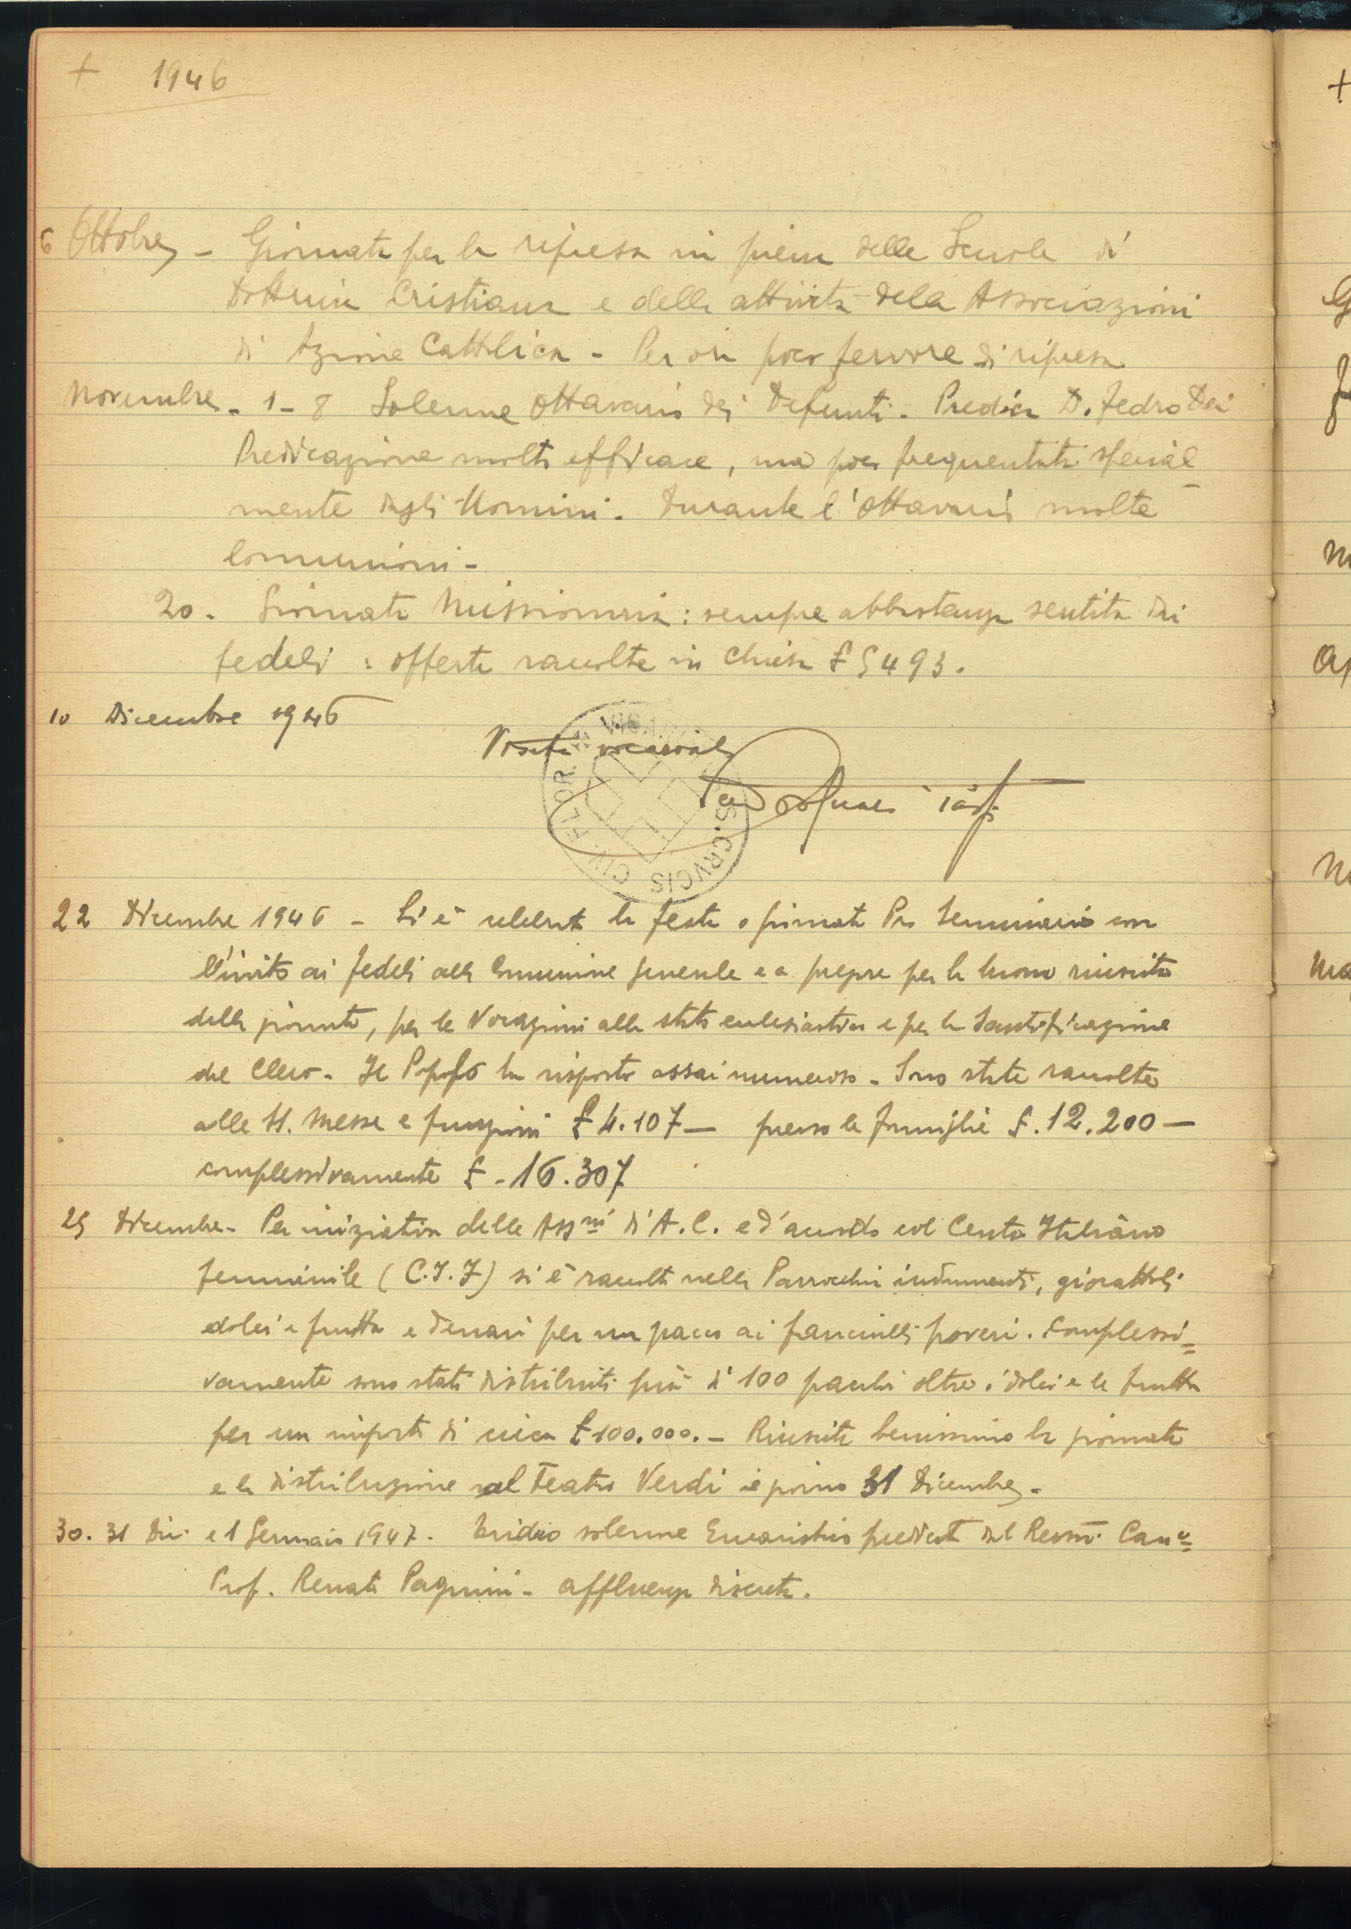 + 1946
6 Ottobre - Giornata per la ripresa in pieno delle Scuole di
Dottrina Cristiana e delle attività dele Associazioni
di Azione Cattolica - Per ora poco fervore di ripresa
Novembre - 1-8 Solenne Ottavario dei Defunti. Predica D. Fedro Dei
Predicazione molto efficace, ma poco frequentata special-
mente dagli Uomini. Durante l'Ottavario molte
Comunioni -
20. Giornata Missionaria: sempre abbastanza sentita dai
fedeli: offerte raccolte in Chiesa £ 5493.
10 Dicembre 1946
Visita vicariale
VICAR S. CRVCIS CIV. FLOR
22 Dicembre 1946 - Si è celebrata la festa o giornata Pro Seminario con
l'invito ai fedeli alla Comunione generale e a pregare per la buona riuscita
della giornata, per le Vocazioni allo stato ecclesiastico e per la Santificazione
del Clero. Il Popolo ha risposto assai numeroso. Sono state raccolte
alle SS. Messe e funzioni £ 4.107 — presso le famiglie £. 12.200 —
complessivamente £ - 16.307
25 Dicembre - Per iniziativa delle Assni d'A. C. e d'accordo col Centro Italiano
femminile (C.I.F) si è raccolto nella Parrocchia indumenti, giocattoli
dolci e frutta e denari per un pacco ai fanciulli poveri. Complessi=
vamente sono stati distribuiti più di 100 pacchi oltre i dolci e la frutta
per un importo di circa £ 100.000. - Riuscita benissimo la giornata
e la distribuzione al Teatro Verdi il giorno 31 Dicembre -
30. 31 Dic. e 1 Gennaio 1947. Triduo solenne Eucaristico predicato dal Revmo. Canco
Prof. Renato Pagnini - affluenza discreta.